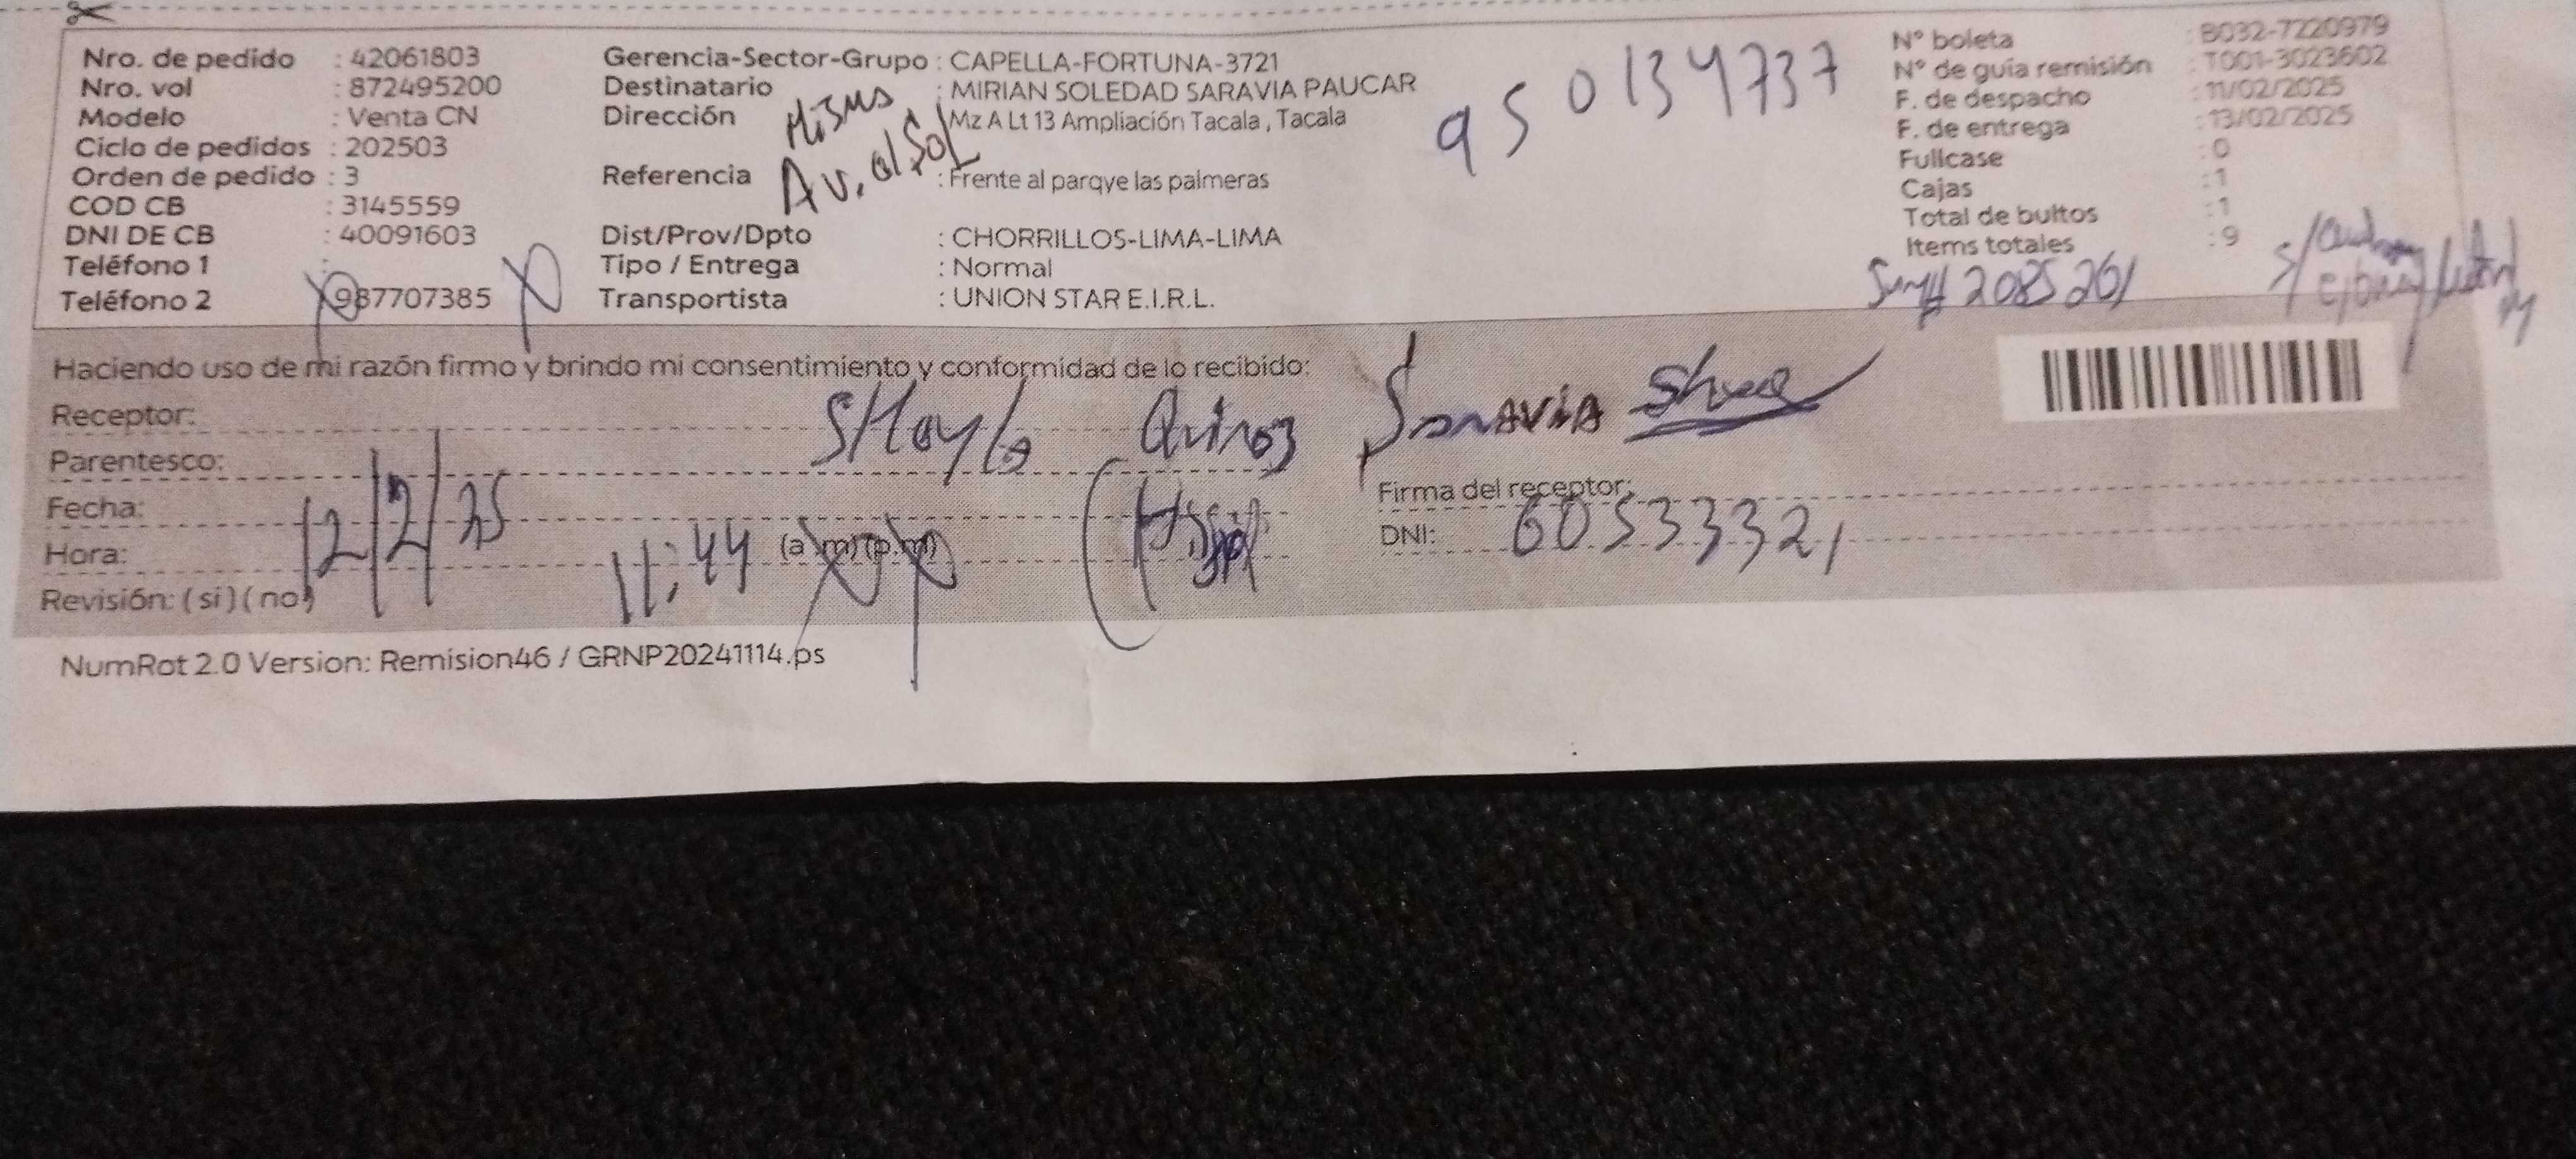 Nro. de pedido : 42061803
Nro. vol : 872495200
Modelo : Venta CN
Ciclo de pedidos : 202503
Orden de pedido : 3
COD CB : 3145559
DNI DE CB : 40091603
Teléfono 1 :
Teléfono 2 : 987707385
Gerencia-Sector-Grupo : CAPELLA-FORTUNA-3721
Destinatario : MIRIAN SOLEDAD SARAVIA PAUCAR
Dirección : Mz A Lt 13 Ampliación Tacala, Tacala
Av. el Sol
Referencia : Frente al parqye las palmeras
Dist/Prov/Dpto : CHORRILLOS-LIMA-LIMA
Tipo / Entrega : Normal
Transportista : UNION STAR E.I.R.L.
950134737
N° boleta : B032-7220979
N° de guía remisión : T001-3023602
F. de despacho : 11/02/2025
F. de entrega : 13/02/2025
Fullcase : 0
Cajas : 1
Total de bultos : 1
Items totales : 9
2085201
Haciendo uso de mi razón firmo y brindo mi consentimiento y conformidad de lo recibido:
Receptor: SHayla Quiroz SaraviA
Parentesco:
Fecha: 12/2/25
Hora: 11:44 (a.m) (p.m)
Revisión: (si) (no)
Firma del receptor:
DNI: 60533321
NumRot 2.0 Version: Remision46 / GRNP20241114.ps